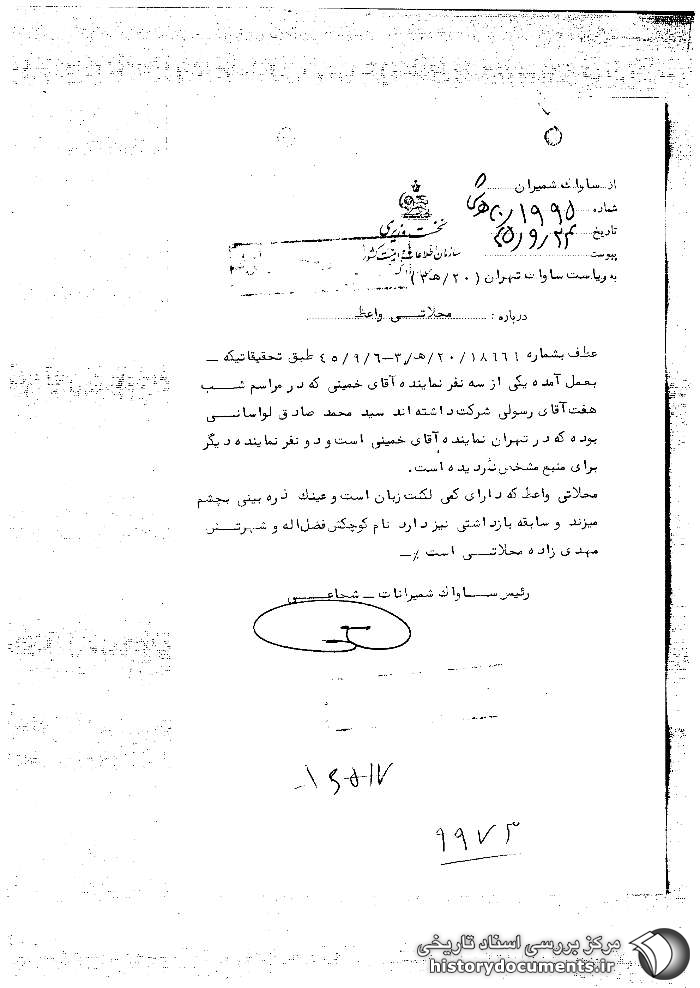 از ساواك شمیران
شماره
تاریخ ۴۵/۹/۲۳
پیوست
نخست وزیری
سازمان اطلاعات و امنیت کشور
به ریاست ساواك تهران (۲۰/هـ۳)
درباره: محلاتی واعظ
عطف بشماره ۱۸۶۶۱/۲۰/هـ۳-۴۵/۹/۶ طبق تحقیقاتیکه
بعمل آمده یکی از سه نفر نماینده آقای خمینی که در مراسم شب
هفت آقای رسولی شرکت داشته اند سید محمد صادق لواسانی
بوده که در تهران نماینده آقای خمینی است و دو نفر نماینده دیگر
برای منبع مشخص نگردیده است.
محلاتی واعظ که دارای کمی لکنت زبان است و عینك ذره بینی بچشم
میزند و سابقه بازداشتی نیز دارد نام کوچکش فضل اله و شهرتش
مهدی زاده محلاتی است /-
رئیس ساواك شمیرانات - شجاعی
۹۹۷۳
مرکز بررسی اسناد تاریخی
historydocuments.ir